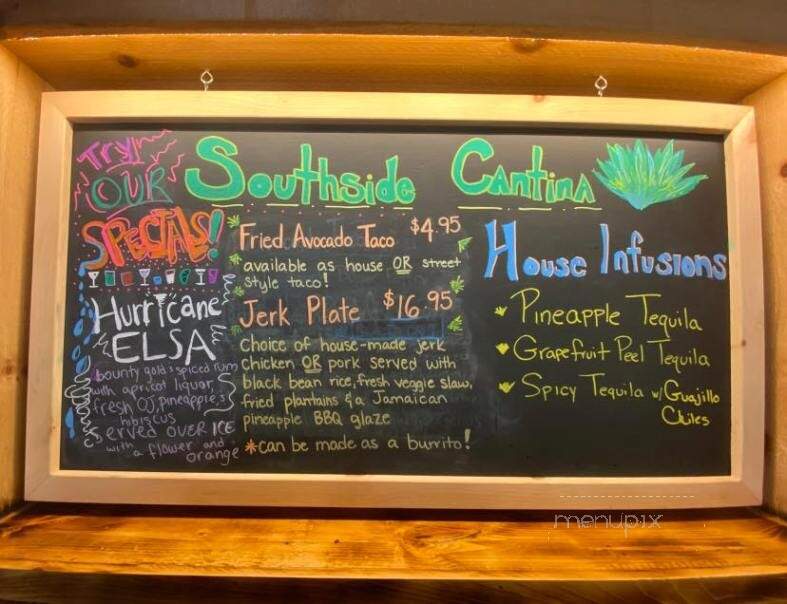 Try!
OUR
SPECIALS!
Hurricane
ELSA
bounty gold & spiced rum
with apricot liquor,
fresh OJ, pineapple &
hibiscus
served OVER ICE
with a flower and
orange
Southside Cantina
Fried Avocado Taco $4.95
available as house OR street
style taco!
Jerk Plate $16.95
choice of house-made jerk
chicken OR pork served with
black bean rice, fresh veggie slaw,
fried plantains & a Jamaican
pineapple BBQ glaze
*can be made as a burrito!
House Infusions
Pineapple Tequila
Grapefruit Peel Tequila
Spicy Tequila w/ Guajillo
Chiles
menupix